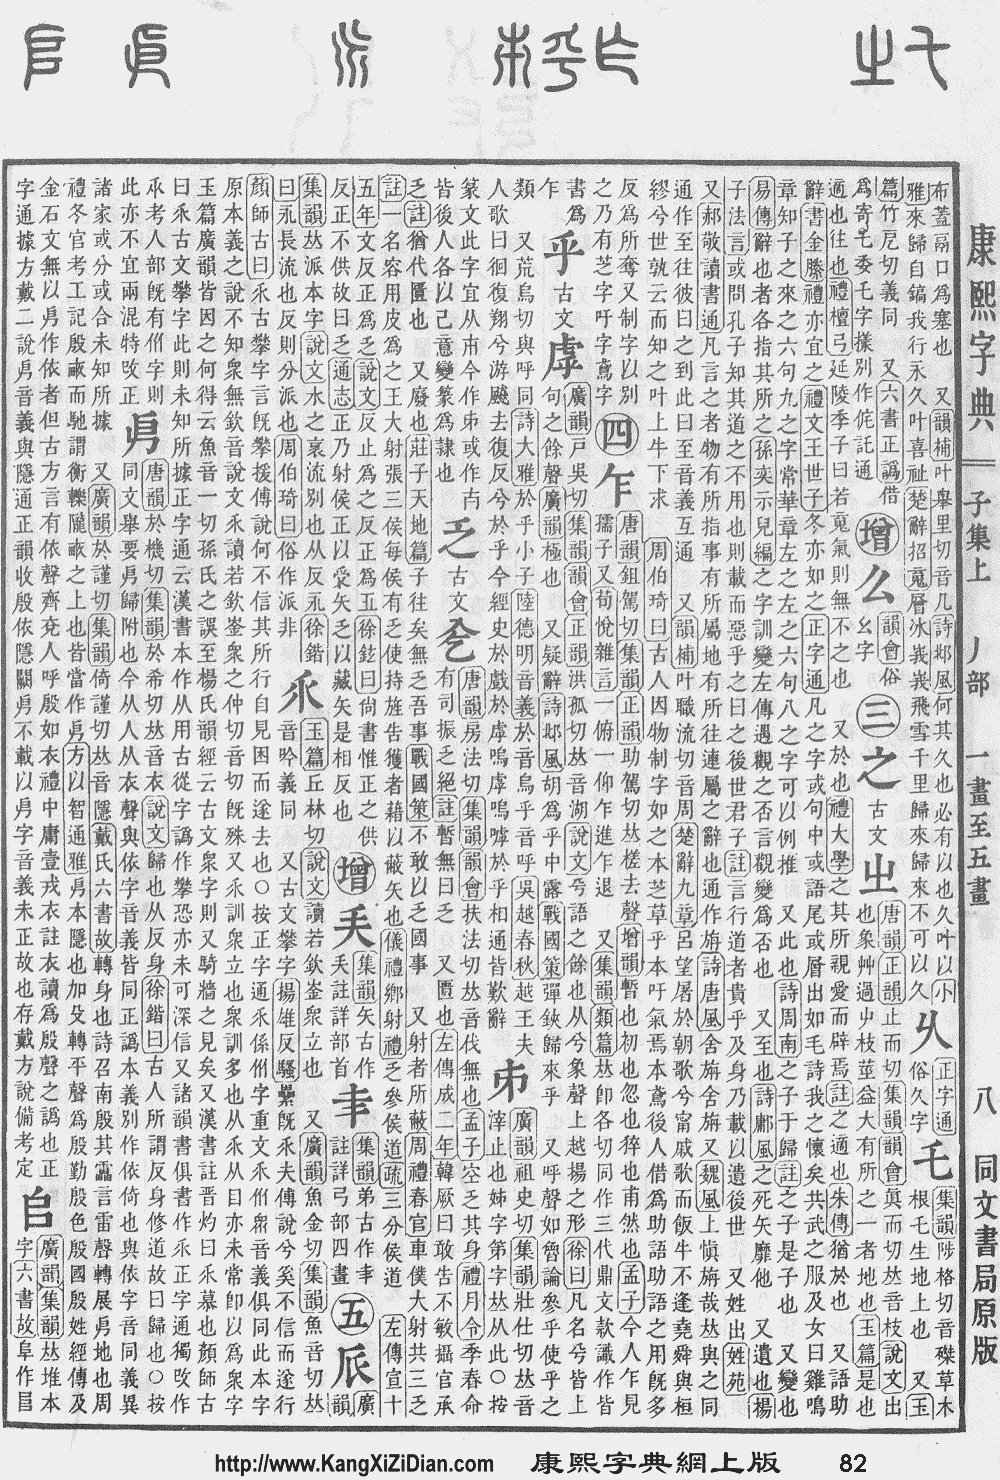 康熙字典 子集上 丿部 一畫至五畫 八 同文書局原版
布葢鬲口爲塞也 又韻補叶舉里切音几詩邶風何其久也必有以也久叶以 小
雅來歸自鎬我行永久叶喜祉楚辭招䰟層冰峩峩飛雪千里歸來歸來不可以久
乆
正字通
俗久字
乇
集韻陟格切音磔草木
根乇生地上也 又玉
篇竹尼切義同 又六書正譌借
爲寄乇委乇字㨾別作侂託通
增 么
韻會俗
幺字
三 之
古文 㞢
唐韻正韻止而切集韻韻會眞而切𠀤音枝說文出
也象艸過屮枝莖益大有所之一者地也 玉篇是也
適也往也禮檀弓延陵季子曰若䰟氣則無不之也 又於也禮大學之其所親愛而辟焉註之適也朱傳猶於也 又語助
辭書金縢禮亦宜之禮文王世子冬亦如之正字通凡之字或句中或語尾或層出如毛詩我之懷矣共武之服及女曰雞鳴
章知子之來之六句九之字常華章左之左之六句八之字可以例推 又此也詩周南之子于歸註之子是子也 又變也
易傳辭也者各指其所之孫奕示兒編之字訓變左傳遇觀之否言觀變爲否也 又至也詩鄘風之死矢靡他 又遺也揚
子法言或問孔子知其道之不用也則載而惡乎之曰之後世君子註言行道者貴乎及身乃載以遺後世 又姓出姓苑
又郝敬讀書通凡言之者物有所指事有所屬地有所往連屬之辭也通作旃詩唐風舍旃舍旃又魏風上愼旃哉𠀤與之同
通作至往彼曰之到此曰至音義互通 又韻補叶職流切音周楚辭九章呂望屠於朝歌兮甯戚歌而飯牛不逢堯舜與桓
繆兮世孰云而知之叶上牛下求 周伯琦曰古人因物制字如之本芝草乎本吁氣焉本鳶後人借爲助語助語之用旣多
反爲所奪又制字以別
之乃有芝字吁字鳶字
四 乍
唐韻鉏駕切集韻正韻助駕切𠀤槎去聲增韻暫也初也忽也猝也甫然也孟子今人乍見
孺子又荀悅雜言一俯一仰乍進乍退 又集韻類篇𠀤卽各切同作三代鼎文款識作皆
書爲
乍
乎
古文 虖
廣韻戸吳切集韻韻會正韻洪孤切𠀤音湖說文兮語之餘也从兮象聲上越揚之形徐曰凡名兮皆上
句之餘聲廣韻極也 又疑辭詩邶風胡爲乎中露戰國策彈鋏歸來乎 又呼聲如曾論參乎使乎之
類 又荒烏切與呼同詩大雅於乎小子陸德明音義於音烏乎音呼吳越春秋越王夫
人歌曰徊復翔兮游颺去復反兮於乎今經史於戲於虖嗚虖嗚嘑於乎相通皆歎辭
𠂔
廣韻祖史切集韻壯仕切𠀤音
滓止也姊字第字𠀤从此○按
篆文此字宜从𣎵今作𠂔或作
皆後人各以己意變篆爲隸也
乏
古文
唐韻房法切集韻韻會扶法切𠀤音伐無也孟子空乏其身禮月令季春命
有司振乏絕註暫無曰乏 又匱也左傳成二年韓厥曰敢告不敏攝官承
乏註猶代匱也 又廢也莊子天地篇子往矣無乏吾事戰國策不敢以乏國事 又射者所蔽周禮春官車僕大射共三乏
註一名容用皮爲之王大射張三侯每侯有乏使持旌告獲者藉以蔽矢也儀禮鄉射禮乏參侯道疏三分侯道 左傳宣十
五年文反正爲乏說文反止爲之反正爲五徐鉉曰尙書惟正之供
反正不供故曰乏通志正乃射侯正以受矢乏以藏矢是相反也
增 𠂕
集韻矢古作
𠂕註詳部首
𠂖
集韻弟古作𠂖
註詳弓部四畫
五 𠂢
廣
韻
集韻𠀤派本字說文水之衺流別也从反永徐鍇
曰永長流也反則分派也周伯琦曰俗作派非
乑
玉篇丘林切說文讀若欽崟衆立也 又廣韻魚金切集韻魚音切𠀤
音吟義同 又古文攀字揚雄反騷纍旣乑夫傅說兮奚不信而遂行
顏師古曰乑古攀字言旣攀援傅說何不信其所行自見困而遂去也○按正字通乑係㐺字重文乑㐺衆音義俱同此本字
原本義之說不知衆無欽音說文乑讀若欽崟衆之仲切音切旣殊又乑訓衆立也衆訓多也从乑从目亦未常卽以爲衆字
玉篇廣韻皆因之何得云魚音一切孫氏之誤至楊氏韻經云古文衆字則又騎牆之見矣又漢書註晋灼曰乑慕也顏師古
曰乑古文攀字此則未知所據正字通云漢書本作从用古從字譌作攀恐亦未可深信又諸韻書俱書作乑正字通獨攺作
考人部旣有㐺字則
此亦不宜兩混特攺正
㐆
唐韻於機切集韻於希切𠀤音衣說文歸也从反身徐鍇曰古人所謂反身修道故曰歸也○按
同文舉要㐆歸附也今从人从衣聲與依字音義皆同正譌本義別作依倚也與依字音同義異
諸家或分或合未知所據 又廣韻於謹切集韻倚謹切𠀤音隱戴氏六書故轉身也詩召南殷其靁言雷聲轉展㐆地也周
禮冬官考工記殷畝而馳謂衡轢隴畝之上也皆當作㐆方以智通雅㐆本隱也加殳轉平聲爲殷勤殷色殷國殷姓經傳及
金石文無以㐆作依者但古方言有依聲齊兗人呼殷如衣禮中庸壹戎衣註衣讀爲殷聲之譌也正
字通據方戴二說㐆音義與隱通正韻收殷依隱關㐆不載以㐆字音義未正故也存戴方說備考定
𠂤
廣韻集韻𠀤堆本
字六書故阜作𠂤
http://www.KangXiZiDian.com 康熙字典網上版 82